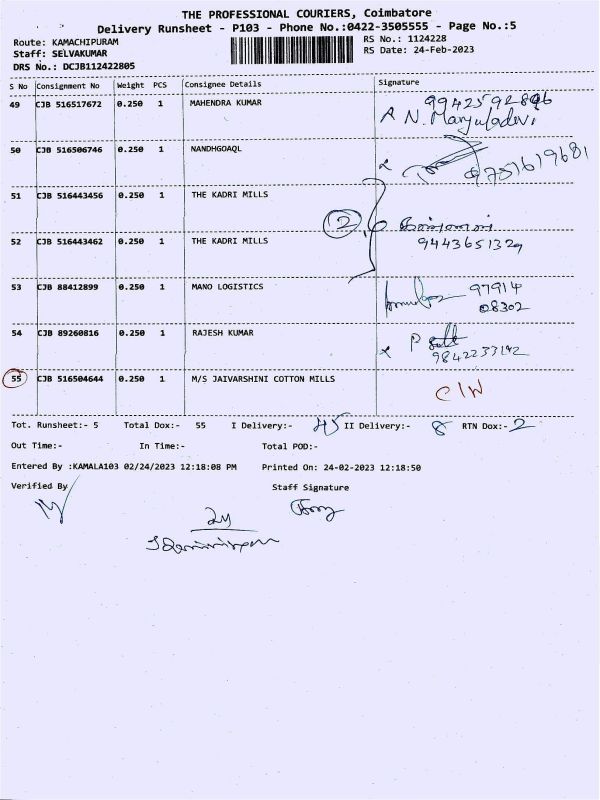 THE PROFESSIONAL COURIERS, Coimbatore
Delivery Runsheet - P103 - Phone No.:0422-3505555 - Page No.:5
Route: KAMACHIPURAM
RS No.: 1124228
Staff: SELVAKUMAR
RS Date: 24-Feb-2023
DRS No.: DCJB112422805
S No Consignment No Weight PCS Consignee Details Signature
49 CJB 516517672 0.250 1 MAHENDRA KUMAR
A N. Manjuladevi
50 CJB 516506746 0.250 1 NANDHGOAQL
9751619681
51 CJB 516443456 0.250 1 THE KADRI MILLS
2
52 CJB 516443462 0.250 1 THE KADRI MILLS 9443651329
53 CJB 88412899 0.250 1 MANO LOGISTICS 97914
08302
54 CJB 89260816 0.250 1 RAJESH KUMAR P
9842233142
55 CJB 516504644 0.250 1 M/S JAIVARSHINI COTTON MILLS
C/W
Tot. Runsheet:- 5 Total Dox:- 55 I Delivery:- 45 II Delivery:- 8 RTN Dox:- 2
Out Time:- In Time:- Total POD:-
Entered By :KAMALA103 02/24/2023 12:18:08 PM Printed On: 24-02-2023 12:18:50
Verified By Staff Signature